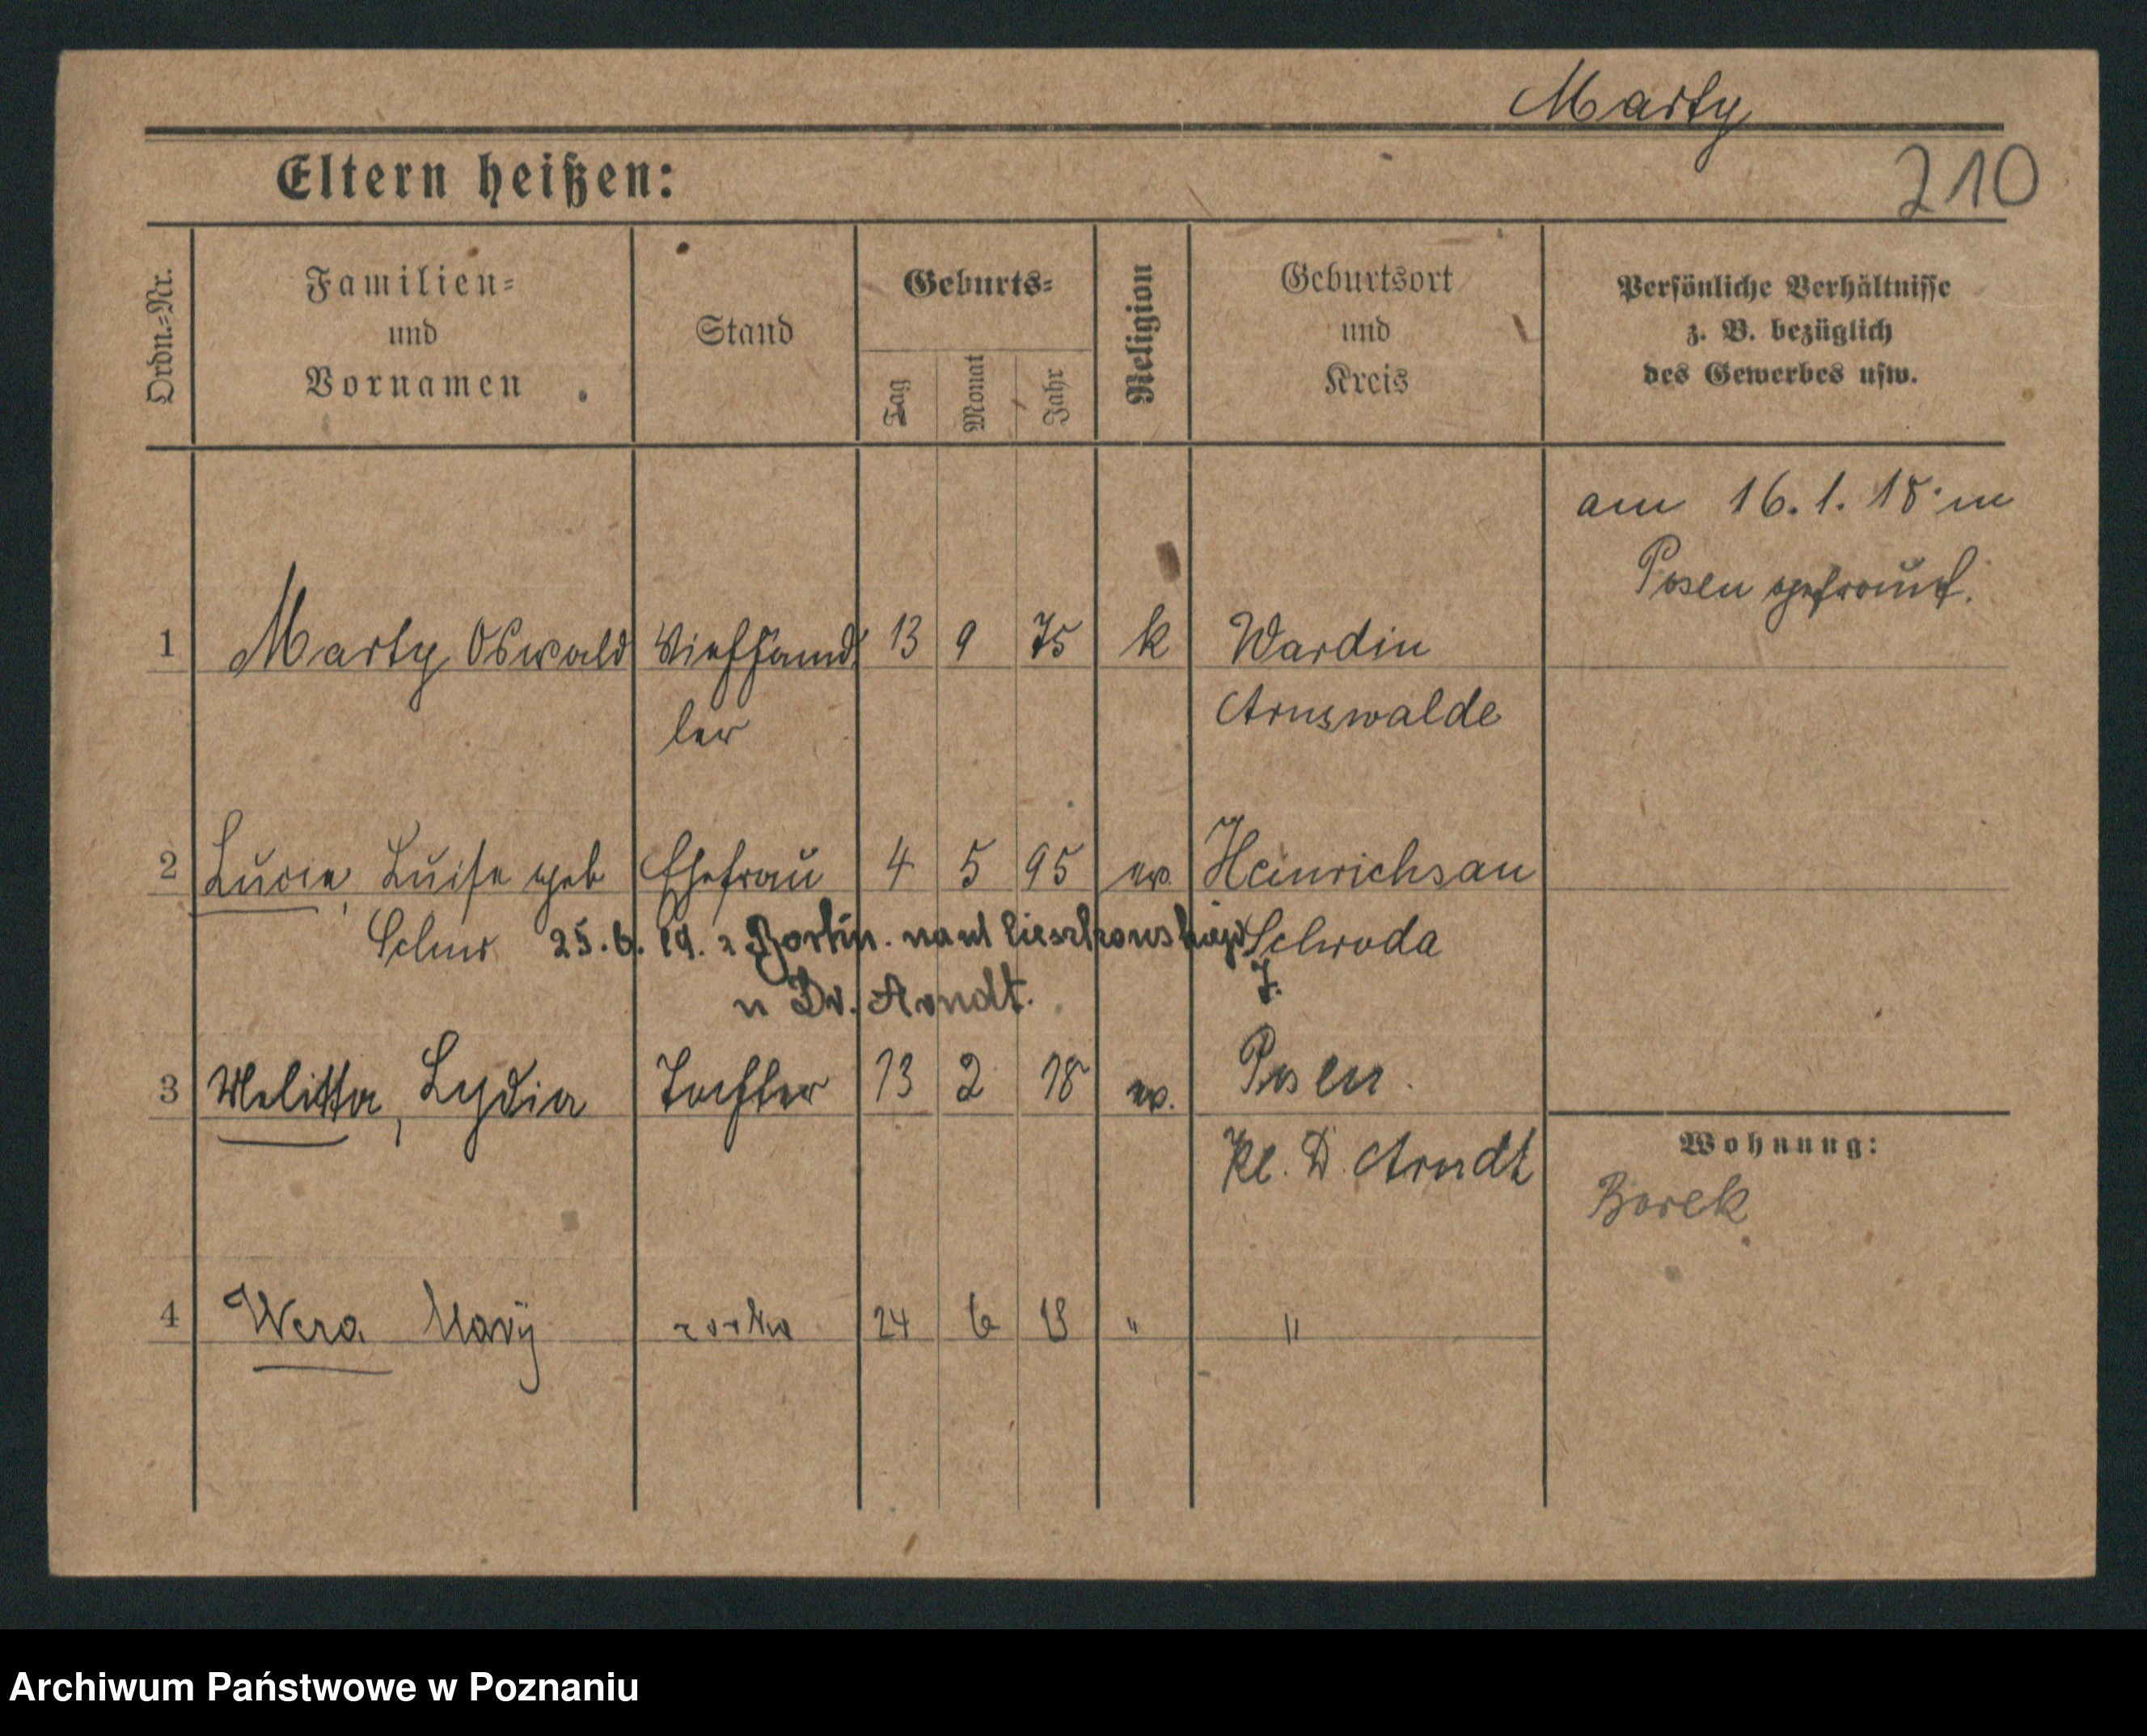 Marty
Eltern heißen:
210
Ordn.=Nr.
Familien=
und
Vornamen
Stand
Geburts=
Tag
Monat
Jahr
Religion
Geburtsort
und
Kreis
Persönliche Verhältnisse
z. B. bezüglich
des Gewerbes usw.
am 16.1.18 in
Posen getraut.
1 Marty Oswald Viehhänd 13 9 75 k Wardin
ler Arnswalde
2 Lucie, Luise geb Ehefrau 4 5 95 ev. Heinrichsau
25.6.19. z Schroda
u Dr. Arndt.
3 Melitta, Lydia Tochter 13 2 18 ev. Posen.
Kl. D. Arndt
Wohnung:
Borek
4 Wera Mary 24 6 19 " "
Archiwum Państwowe w Poznaniu